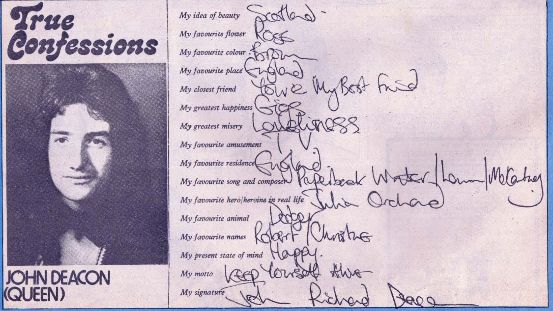 True
Confessions
My idea of beauty Scotland.
My favourite flower Rose
My favourite colour Brown
My favourite place England
My closest friend You're My Best Friend
My greatest happiness Gigs
My greatest misery Loneliness
My favourite amusement
My favourite residence England.
My favourite song and composer Paperback Writer/Lennon/McCartney
My favourite hero/heroine in real life Julia Orchard
My favourite animal
My favourite names Robert/Christine
My present state of mind Happy.
My motto Keep Yourself Alive
My signature John Richard Deacon
JOHN DEACON
(QUEEN)